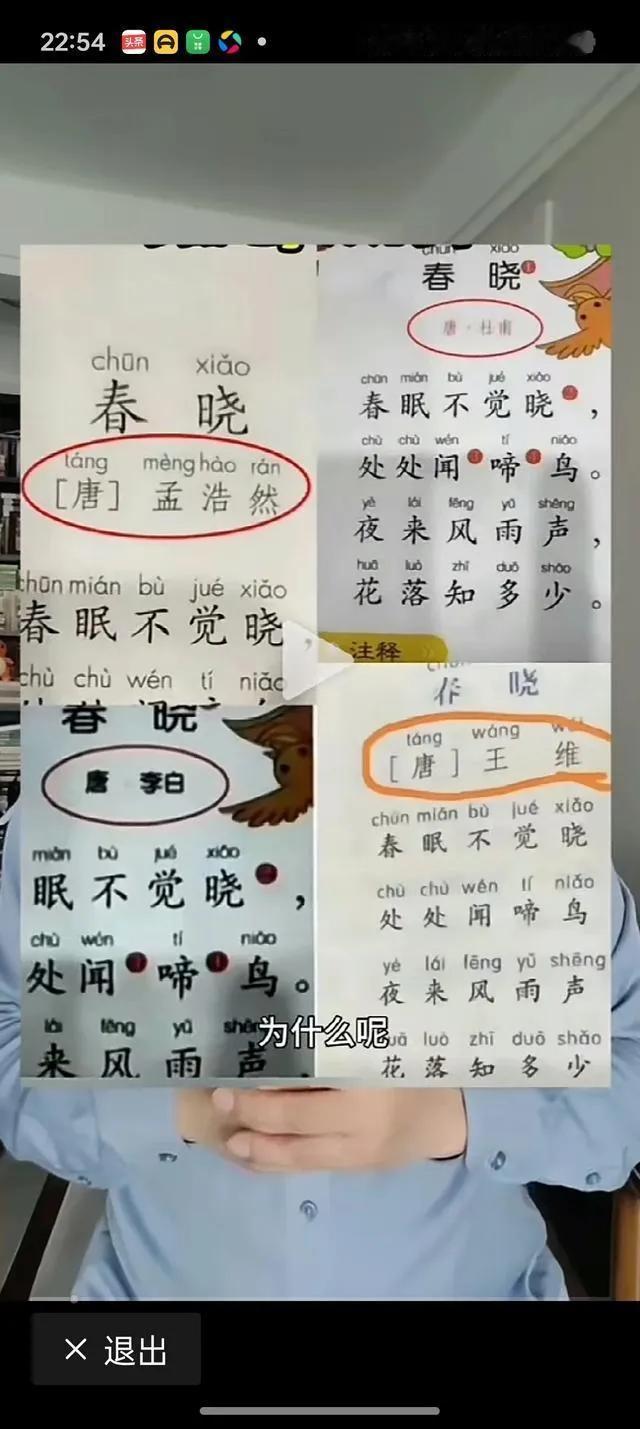 22:54
头条
chūn xiǎo
春 晓
táng mèng hào rán
[唐] 孟 浩 然
chūn mián bù jué xiǎo
春 眠 不 觉 晓,
chù chù wén tí niǎo
chūn xiǎo
春 晓
唐·杜甫
chūn mián bù jué xiǎo
春 眠 不 觉 晓,
chù chù wén tí niǎo
处 处 闻 啼 鸟。
yè lái fēng yǔ shēng
夜 来 风 雨 声,
huā luò zhī duō shǎo
花 落 知 多 少。
注释
春 晓
唐 李白
mián bù jué xiǎo
眠 不 觉 晓,
chù wén tí niǎo
处 闻 啼 鸟。
lái fēng yǔ shēng
来 风 雨 声,
春 晓
táng wáng
[唐] 王 维
chūn mián bù jué xiǎo
春 眠 不 觉 晓
chù chù wén tí niǎo
处 处 闻 啼 鸟
yè lái fēng yǔ shēng
夜 来 风 雨 声
huā luò zhī duō shǎo
花 落 知 多 少
为什么呢
× 退出